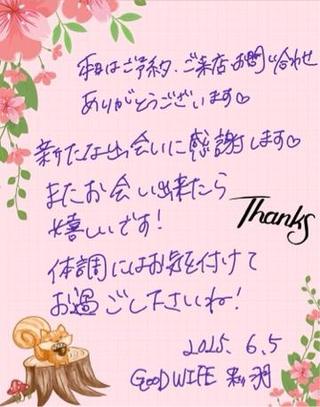 本日はご予約、ご来店お問い合わせ
ありがとうございます♡
新たな出会いに感謝します♡
またお会い出来たら
嬉しいです!
Thanks
体調にはお気を付けて
お過ごし下さいね!
2025.6.5
GOODWIFE